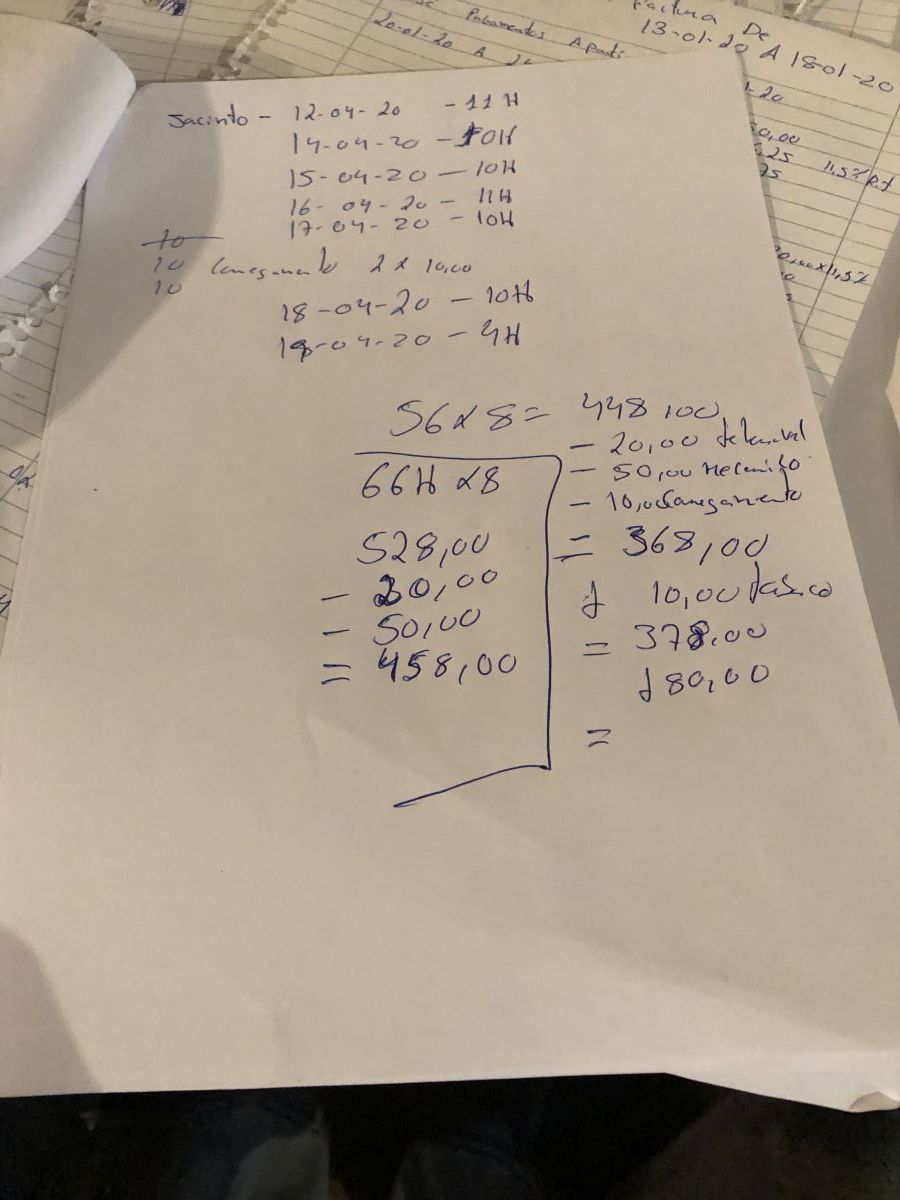 factura De
13-01-20 A 18-01-20
Pabamentos Aparti
20-01-20 A
-20
50,00
,25 11,5% R.t
75
x11,5%
Jacinto - 12-04-20 - 11H
14-04-20 - 10H
15-04-20 - 10H
16-04-20 - 11H
17-04-20 - 10H
10
10 Carregamento 2 x 10,00
10
18-04-20 - 10H
19-04-20 - 4H
56 x 8 = 448,00
- 20,00
- 50,00
- 10,00 Carregamento
= 368,00
+ 10,00
= 378,00
+ 80,00
=
66H x 8
528,00
- 20,00
- 50,00
= 458,00